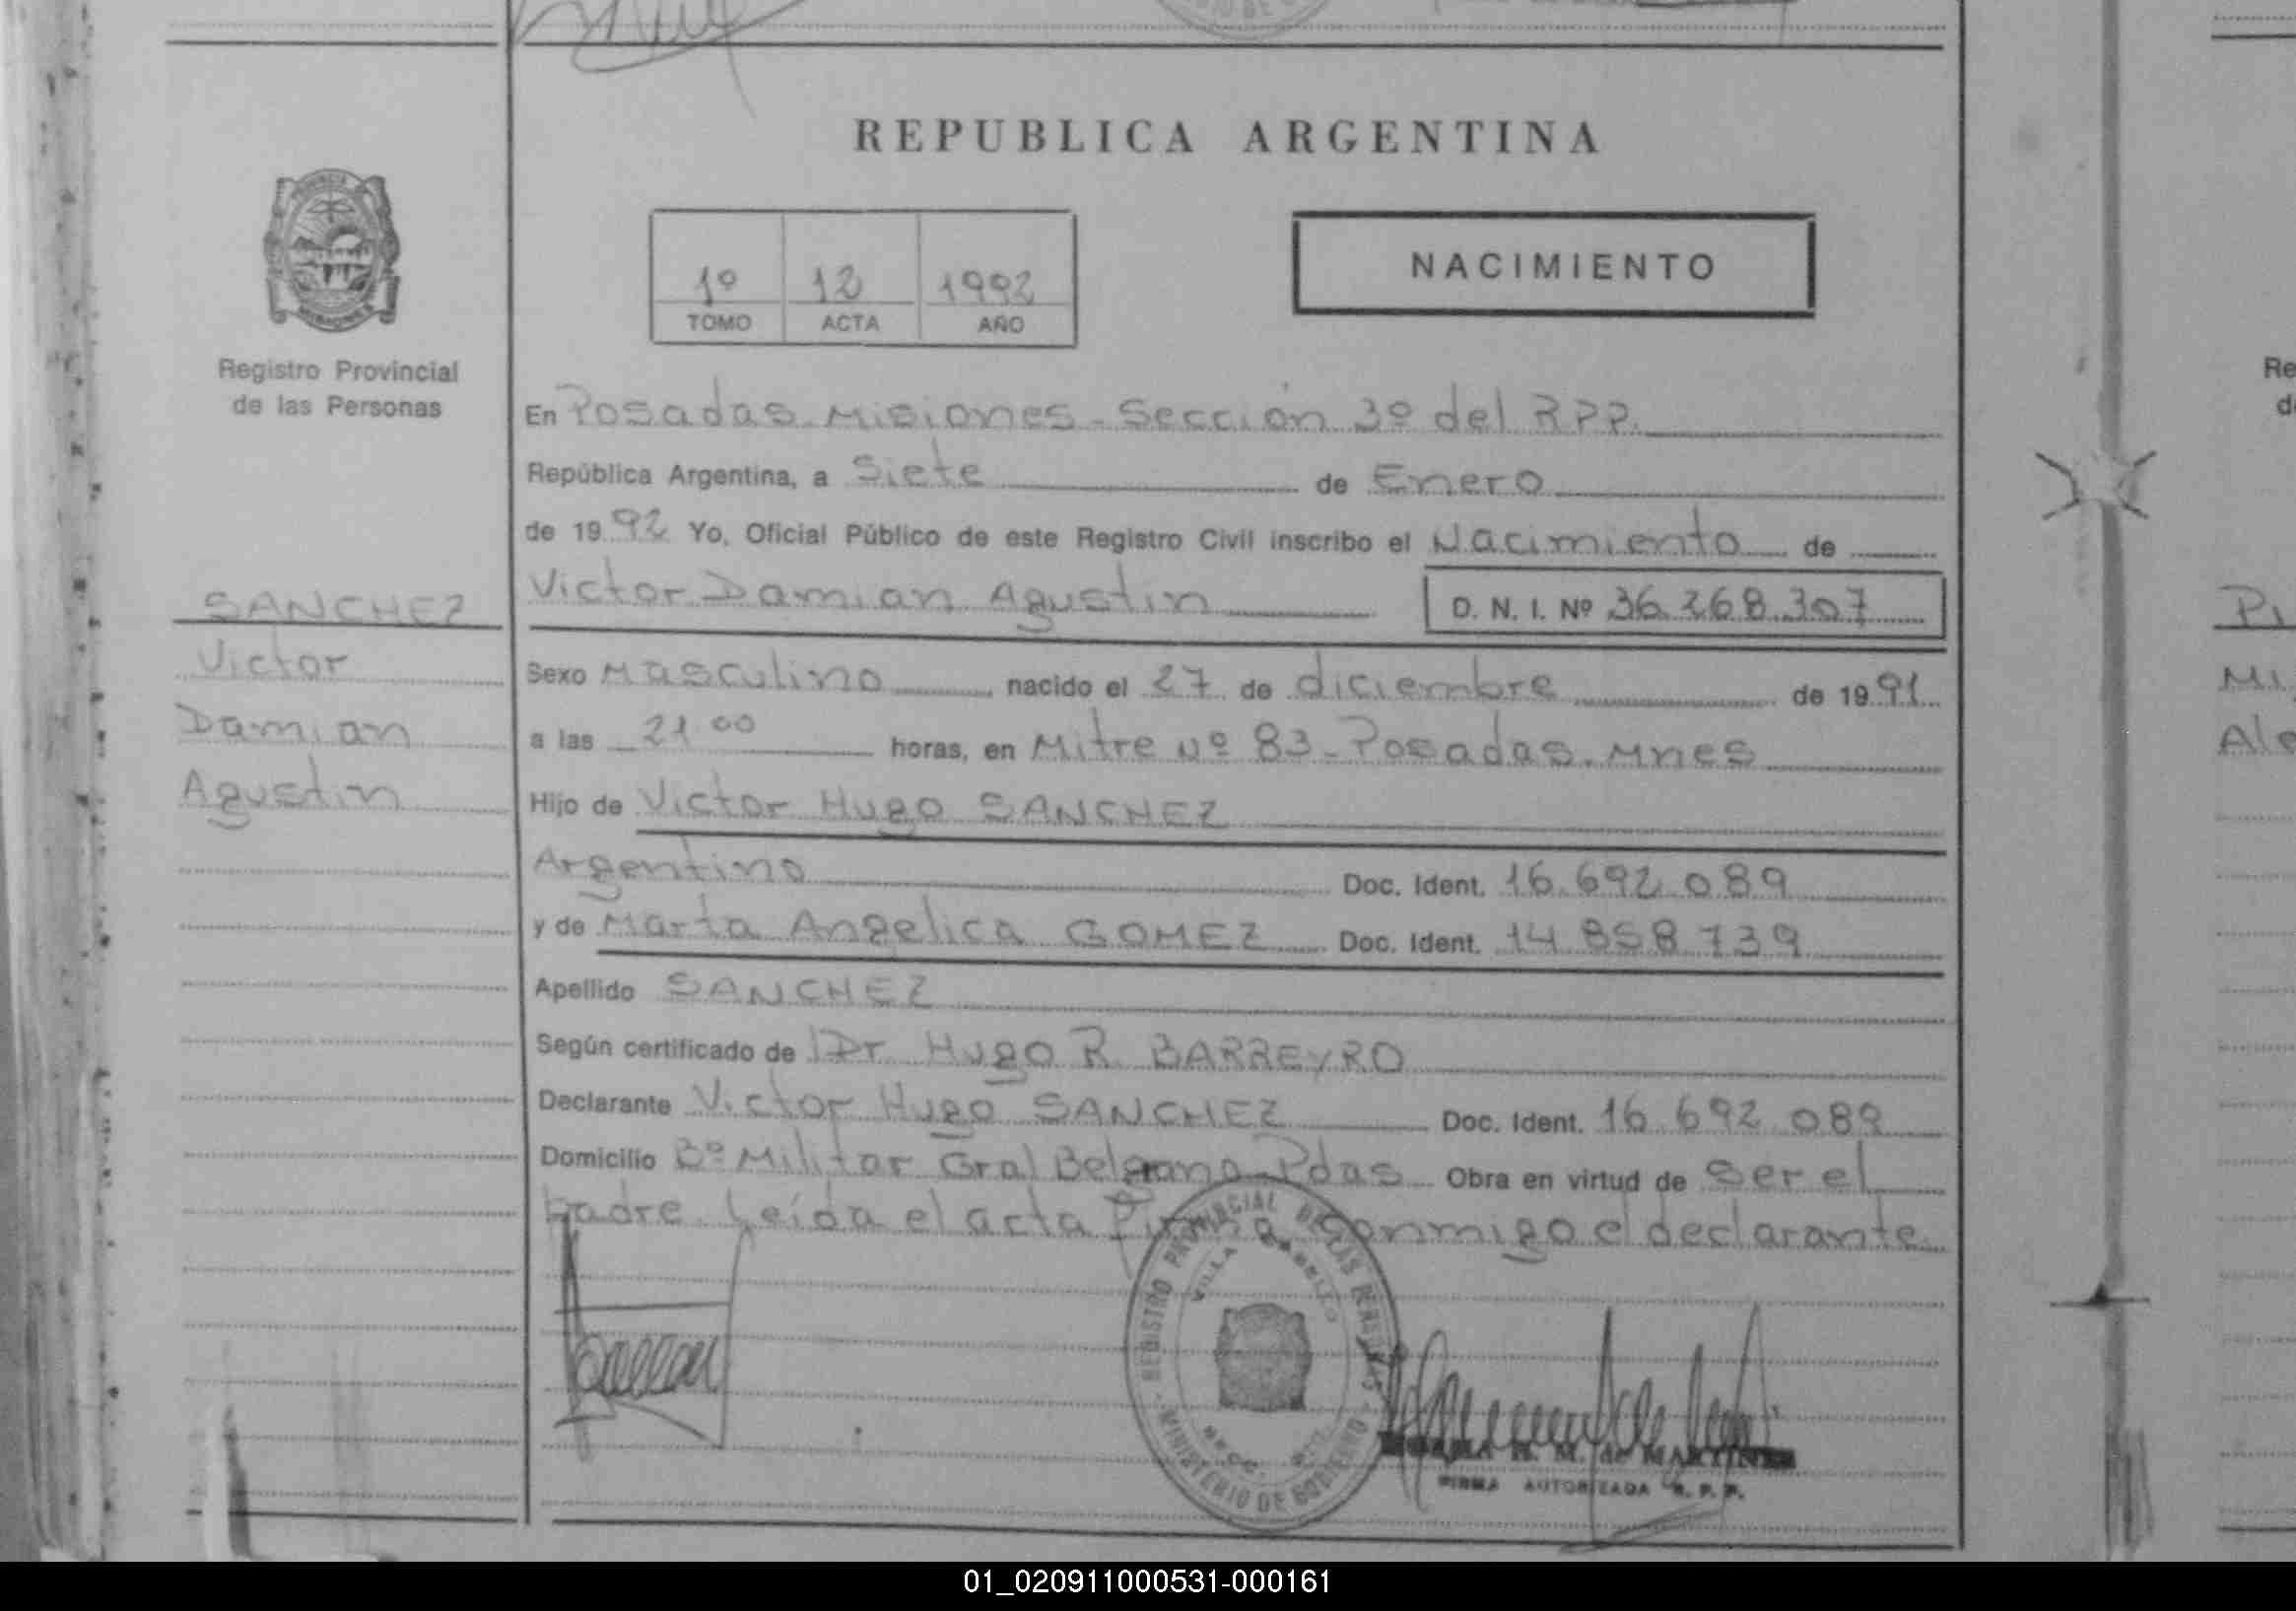 REPUBLICA ARGENTINA
1º 12 1992
TOMO ACTA AÑO
NACIMIENTO
Registro Provincial
de las Personas
SANCHEZ
Victor
Damian
Agustin
En Posadas. Misiones - Sección 3º del RPP.
República Argentina, a Siete de Enero
de 1992 Yo, Oficial Público de este Registro Civil inscribo el Nacimiento de
Victor Damian Agustin D. N. I. Nº 36.268.307
Sexo Masculino nacido el 27 de diciembre de 1991
a las 21 00 horas, en Mitre Nº 83 - Posadas. Mnes
Hijo de Victor Hugo SANCHEZ
Argentino Doc. Ident. 16.692.089
y de Marta Angelica GOMEZ Doc. Ident. 14.858.739
Apellido SANCHEZ
Según certificado de Dr Hugo R. BARREYRO
Declarante Victor Hugo SANCHEZ Doc. Ident. 16.692.089
Domicilio Bº Militar Gral Belgrano - Pdas Obra en virtud de Ser el
padre. Leída el acta firma conmigo el declarante
REGISTRO PROVINCIAL DE LAS PERSONAS
VILLA CABELLO
MINISTERIO DE GOBIERNO
H. M. de MARTINEZ
FIRMA AUTORIZADA R. P. P.
Re
Pi
Mi
Ale
01_020911000531-000161